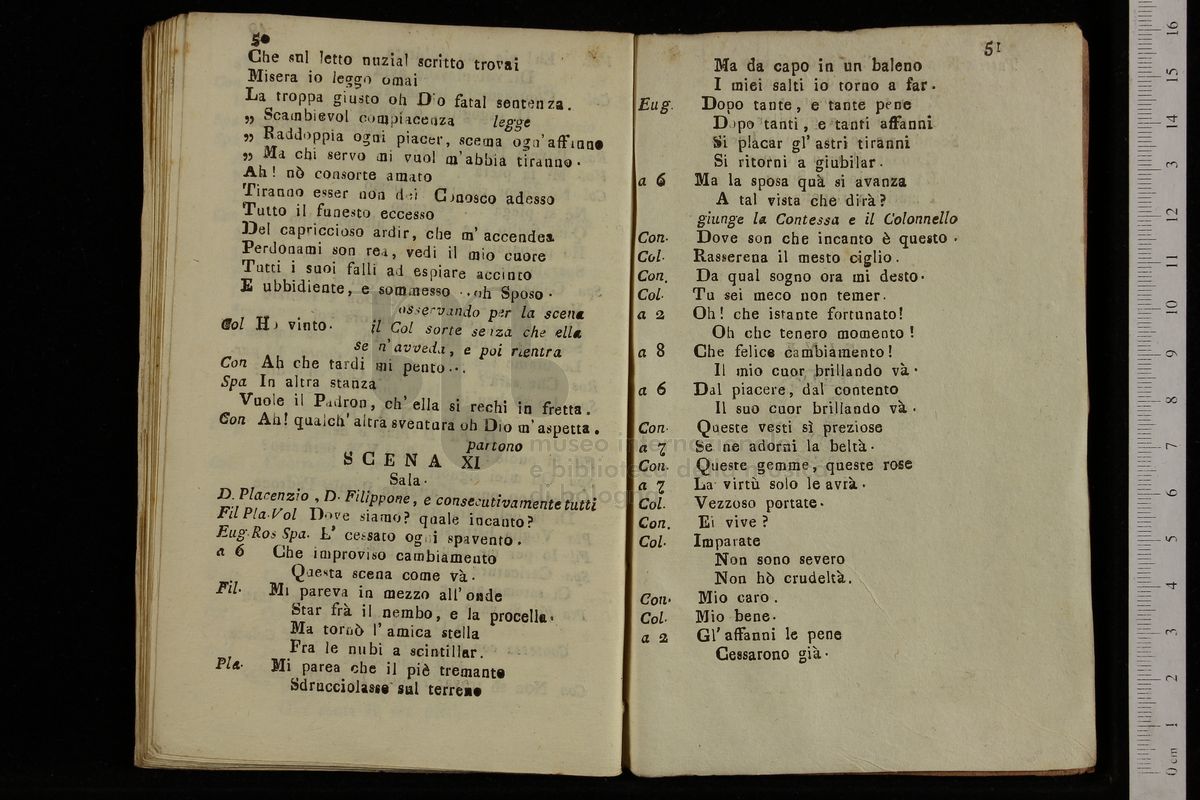 50
Che sul letto nuzial scritto trovai
Misera io leggo omai
La troppa giusto oh D'o fatal sentenza.
„ Scambievol compiacenza legge
„ Raddoppia ogni piacer, scema ogn' affanno
„ Ma chi servo mi vuol m'abbia tiranno.
Ah! nò consorte amato
Tiranno esser non dei Conosco adesso
Tutto il funesto eccesso
Del capriccioso ardir, che m' accendea
Perdonami son rea, vedi il mio cuore
Tutti i suoi falli ad espiare accinto
E ubbidiente, e sommesso ...oh Sposo.
osservando per la scena
Col Ho vinto. il Col sorte senza che ella
se n'avveda, e poi rientra
Con Ah che tardi mi pento...
Spa In altra stanza
Vuole il Padron, ch' ella si rechi in fretta.
Con Ah! qualch' altra sventura oh Dio m'aspetta.
partono
SCENA XI
Sala.
D. Placenzio, D. Filippone, e consecutivamente tutti
Fil Pla.Vol Dove siamo? quale incanto?
Eug.Ros Spa. E' cessato ogni spavento.
a 6 Che improviso cambiamento
Questa scena come và.
Fil. Mi pareva in mezzo all' onde
Star frà il nembo, e la procella.
Ma tornò l' amica stella
Fra le nubi a scintillar.
Pla. Mi parea che il piè tremante
Sdrucciolasse sul terreno
51
Ma da capo in un baleno
I miei salti io torno a far.
Eug. Dopo tante, e tante pene
Dopo tanti, e tanti affanni
Si placar gl' astri tiranni
Si ritorni a giubilar.
a 6 Ma la sposa quà si avanza
A tal vista che dirà?
giunge la Contessa e il Colonnello
Con. Dove son che incanto è questo.
Col. Rasserena il mesto ciglio.
Con. Da qual sogno ora mi desto.
Col. Tu sei meco non temer.
a 2 Oh! che istante fortunato!
Oh che tenero momento!
a 8 Che felice cambiamento!
Il mio cuor brillando và.
a 6 Dal piacere, dal contento
Il suo cuor brillando và.
Con. Queste vesti sì preziose
a 7 Se ne adorni la beltà.
Con. Queste gemme, queste rose
a 7 La virtù solo le avrà.
Col. Vezzoso portate.
Con. Ei vive?
Col. Imparate
Non sono severo
Non hò crudeltà.
Con. Mio caro.
Col. Mio bene.
a 2 Gl' affanni le pene
Cessarono già.
museo internazionale
e biblioteca della musica
di bologna
0 cm 1 2 3 4 5 6 7 8 9 10 11 12 13 14 15 16